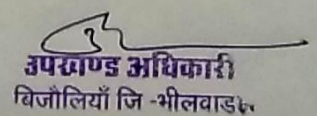 उपखण्ड अधिकारी
बिजौलियाँ जि -भीलवाडा